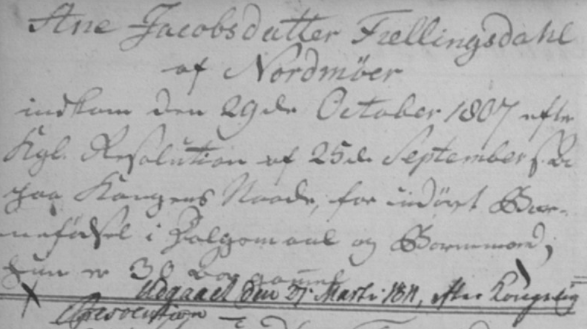 Ane Jacobsdatter Fællingsdahl
af Nordmöer
indkom den 29de October 1807 efter
Kgl. Resolution af 25de September s.A.
paa Kongens Naade, for udört Bar-
nefödsel i Dølgsmaal og Barnemord,
hun er 30 Aar gammel
Udgaaet den 27 Marti 1811, efter Kongelig
Resolution